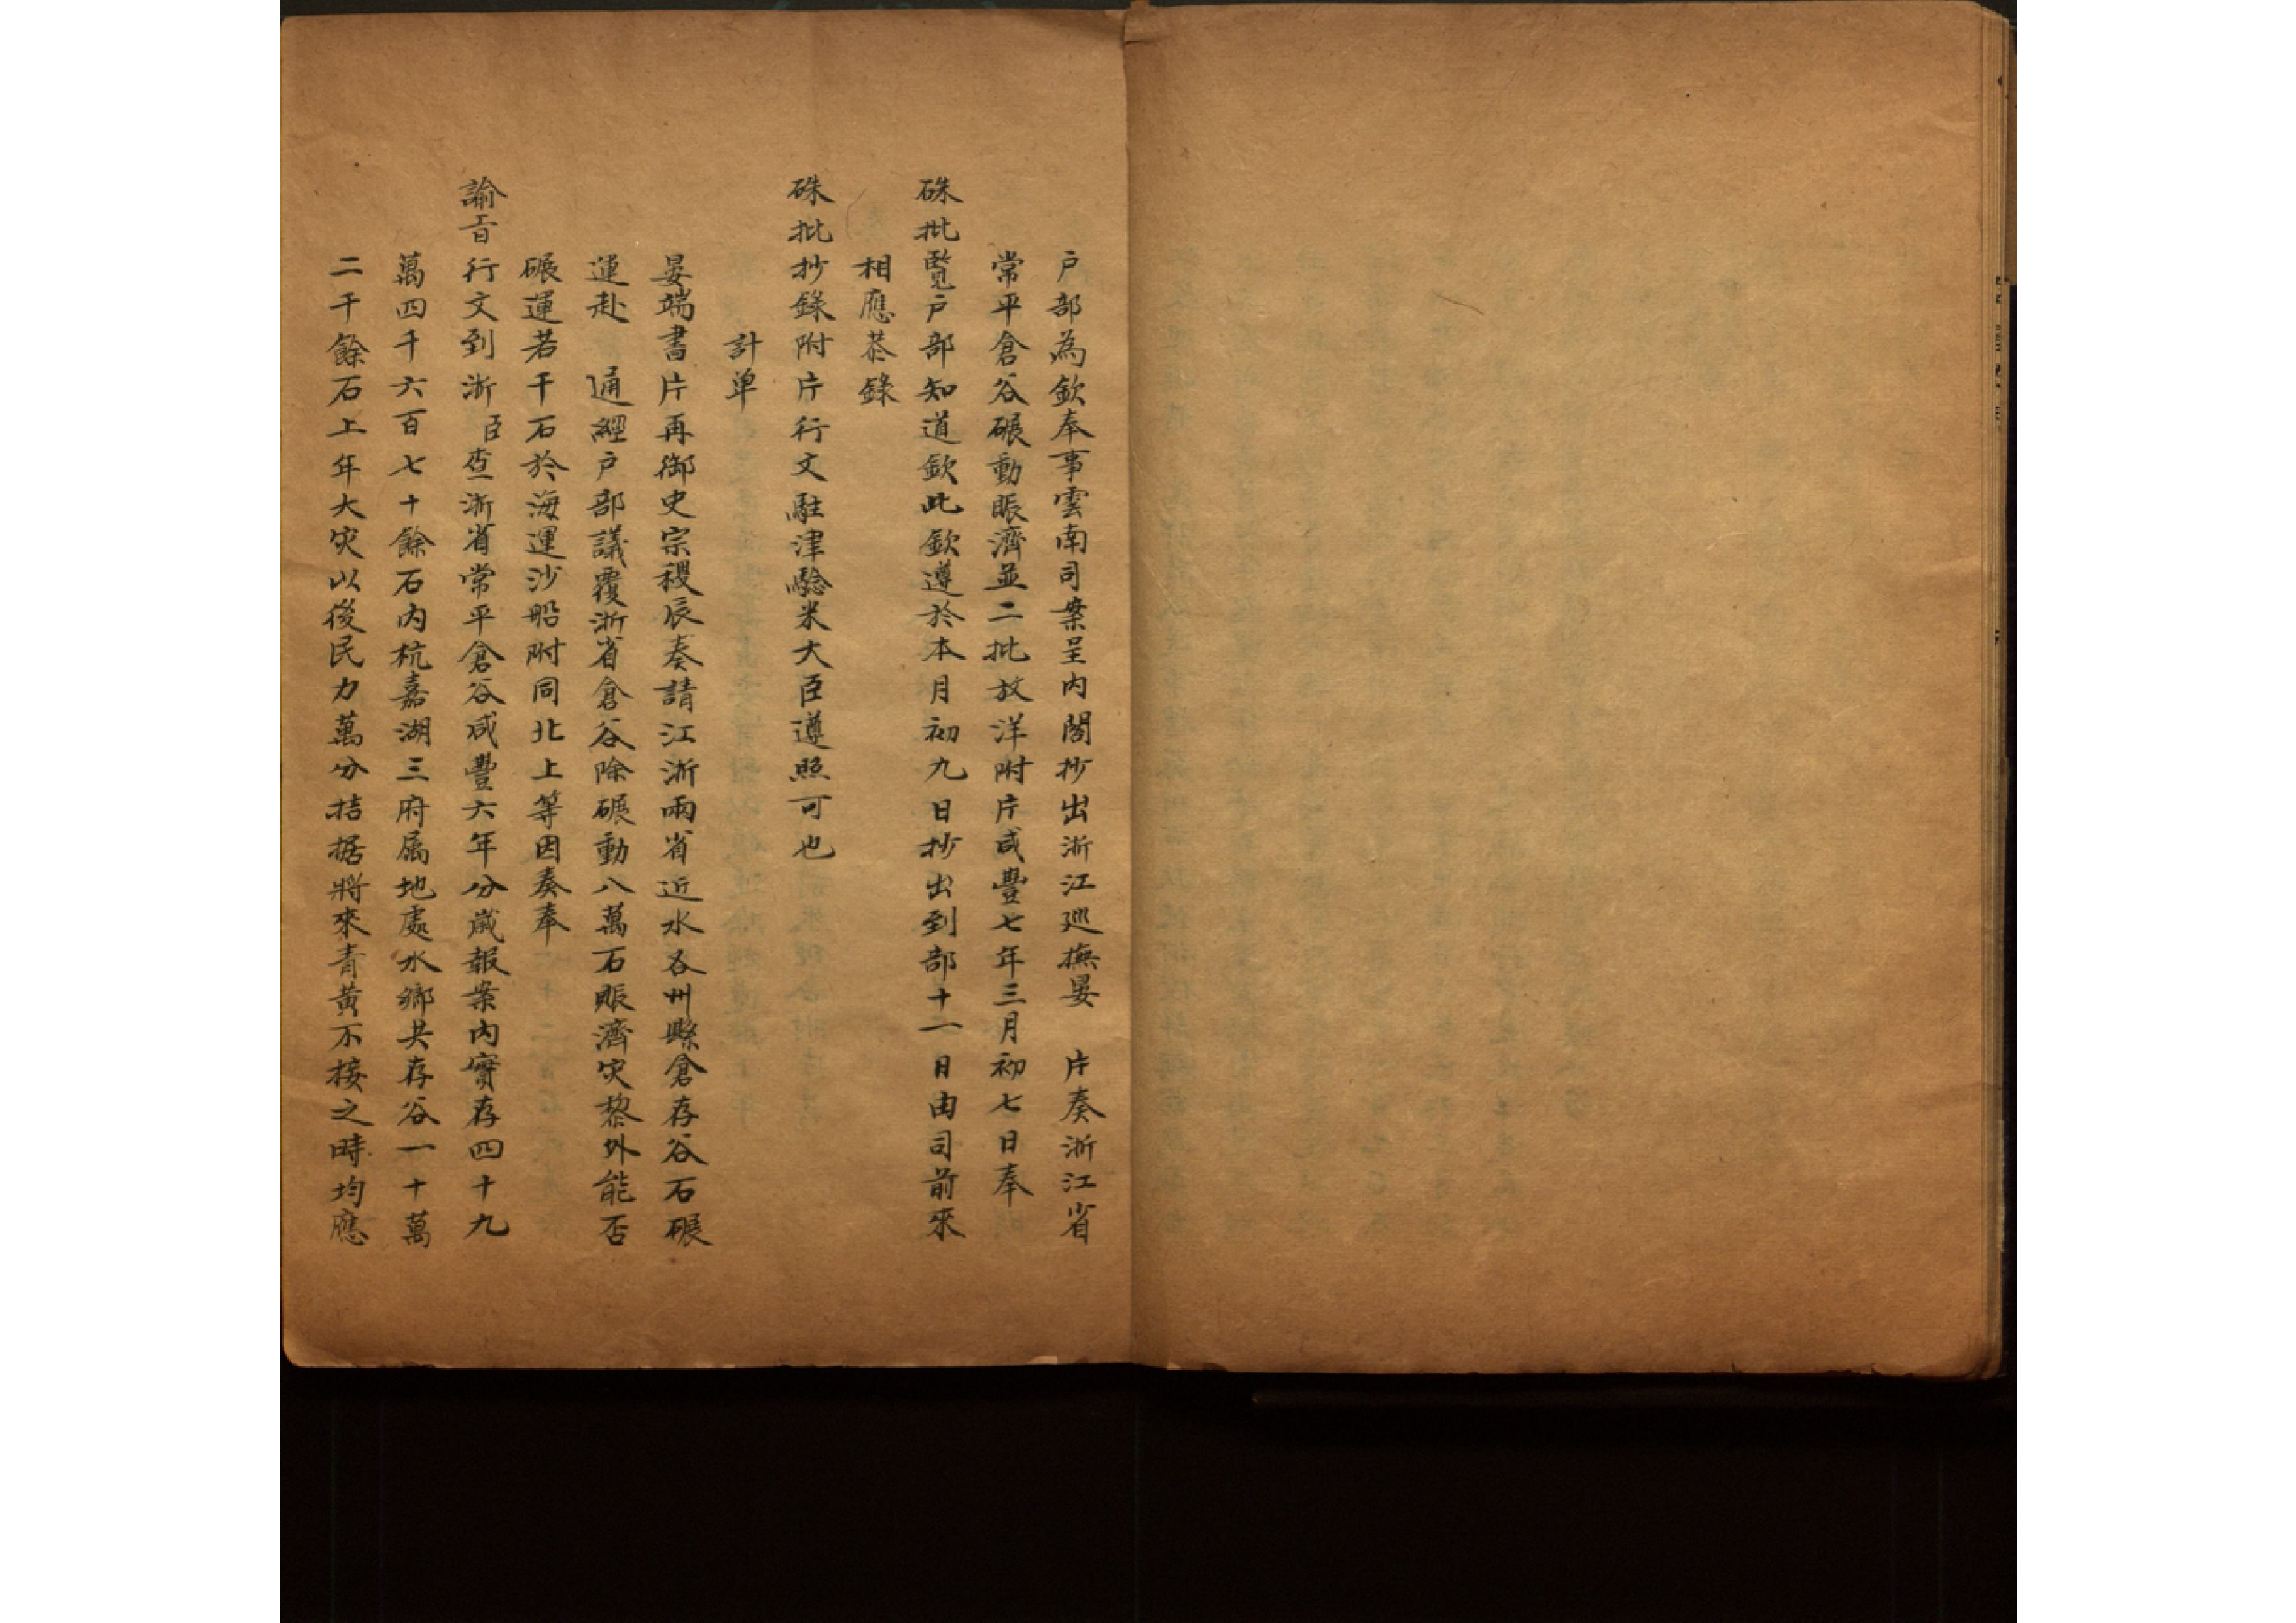 户部為欽奉事雲南司案呈內閣抄出浙江巡撫晏 片奏浙江省
常平倉谷碾動賑濟並二批放洋附片咸豐七年三月初七日奉
硃批覽户部知道欽此欽遵於本月初九日抄出到部十二日由司前來
相應恭錄
硃批抄錄附片行文駐津驗米大臣遵照可也
計单
晏端書片再御史宗稷辰奏請江浙兩省近水各州縣倉存谷石碾
運赴 通經户部議覆浙省倉谷除碾動八萬石賑濟灾黎外能否
碾運若干石於海運沙船附同北上等因奏奉
諭旨行文到浙臣查浙省常平倉谷咸豐六年分歲報案內實存四十九
萬四千六百七十餘石內杭嘉湖三府属地處水鄉共存谷一十萬
二千餘石上年大灾以後民力萬分拮据將來青黃不接之時均應